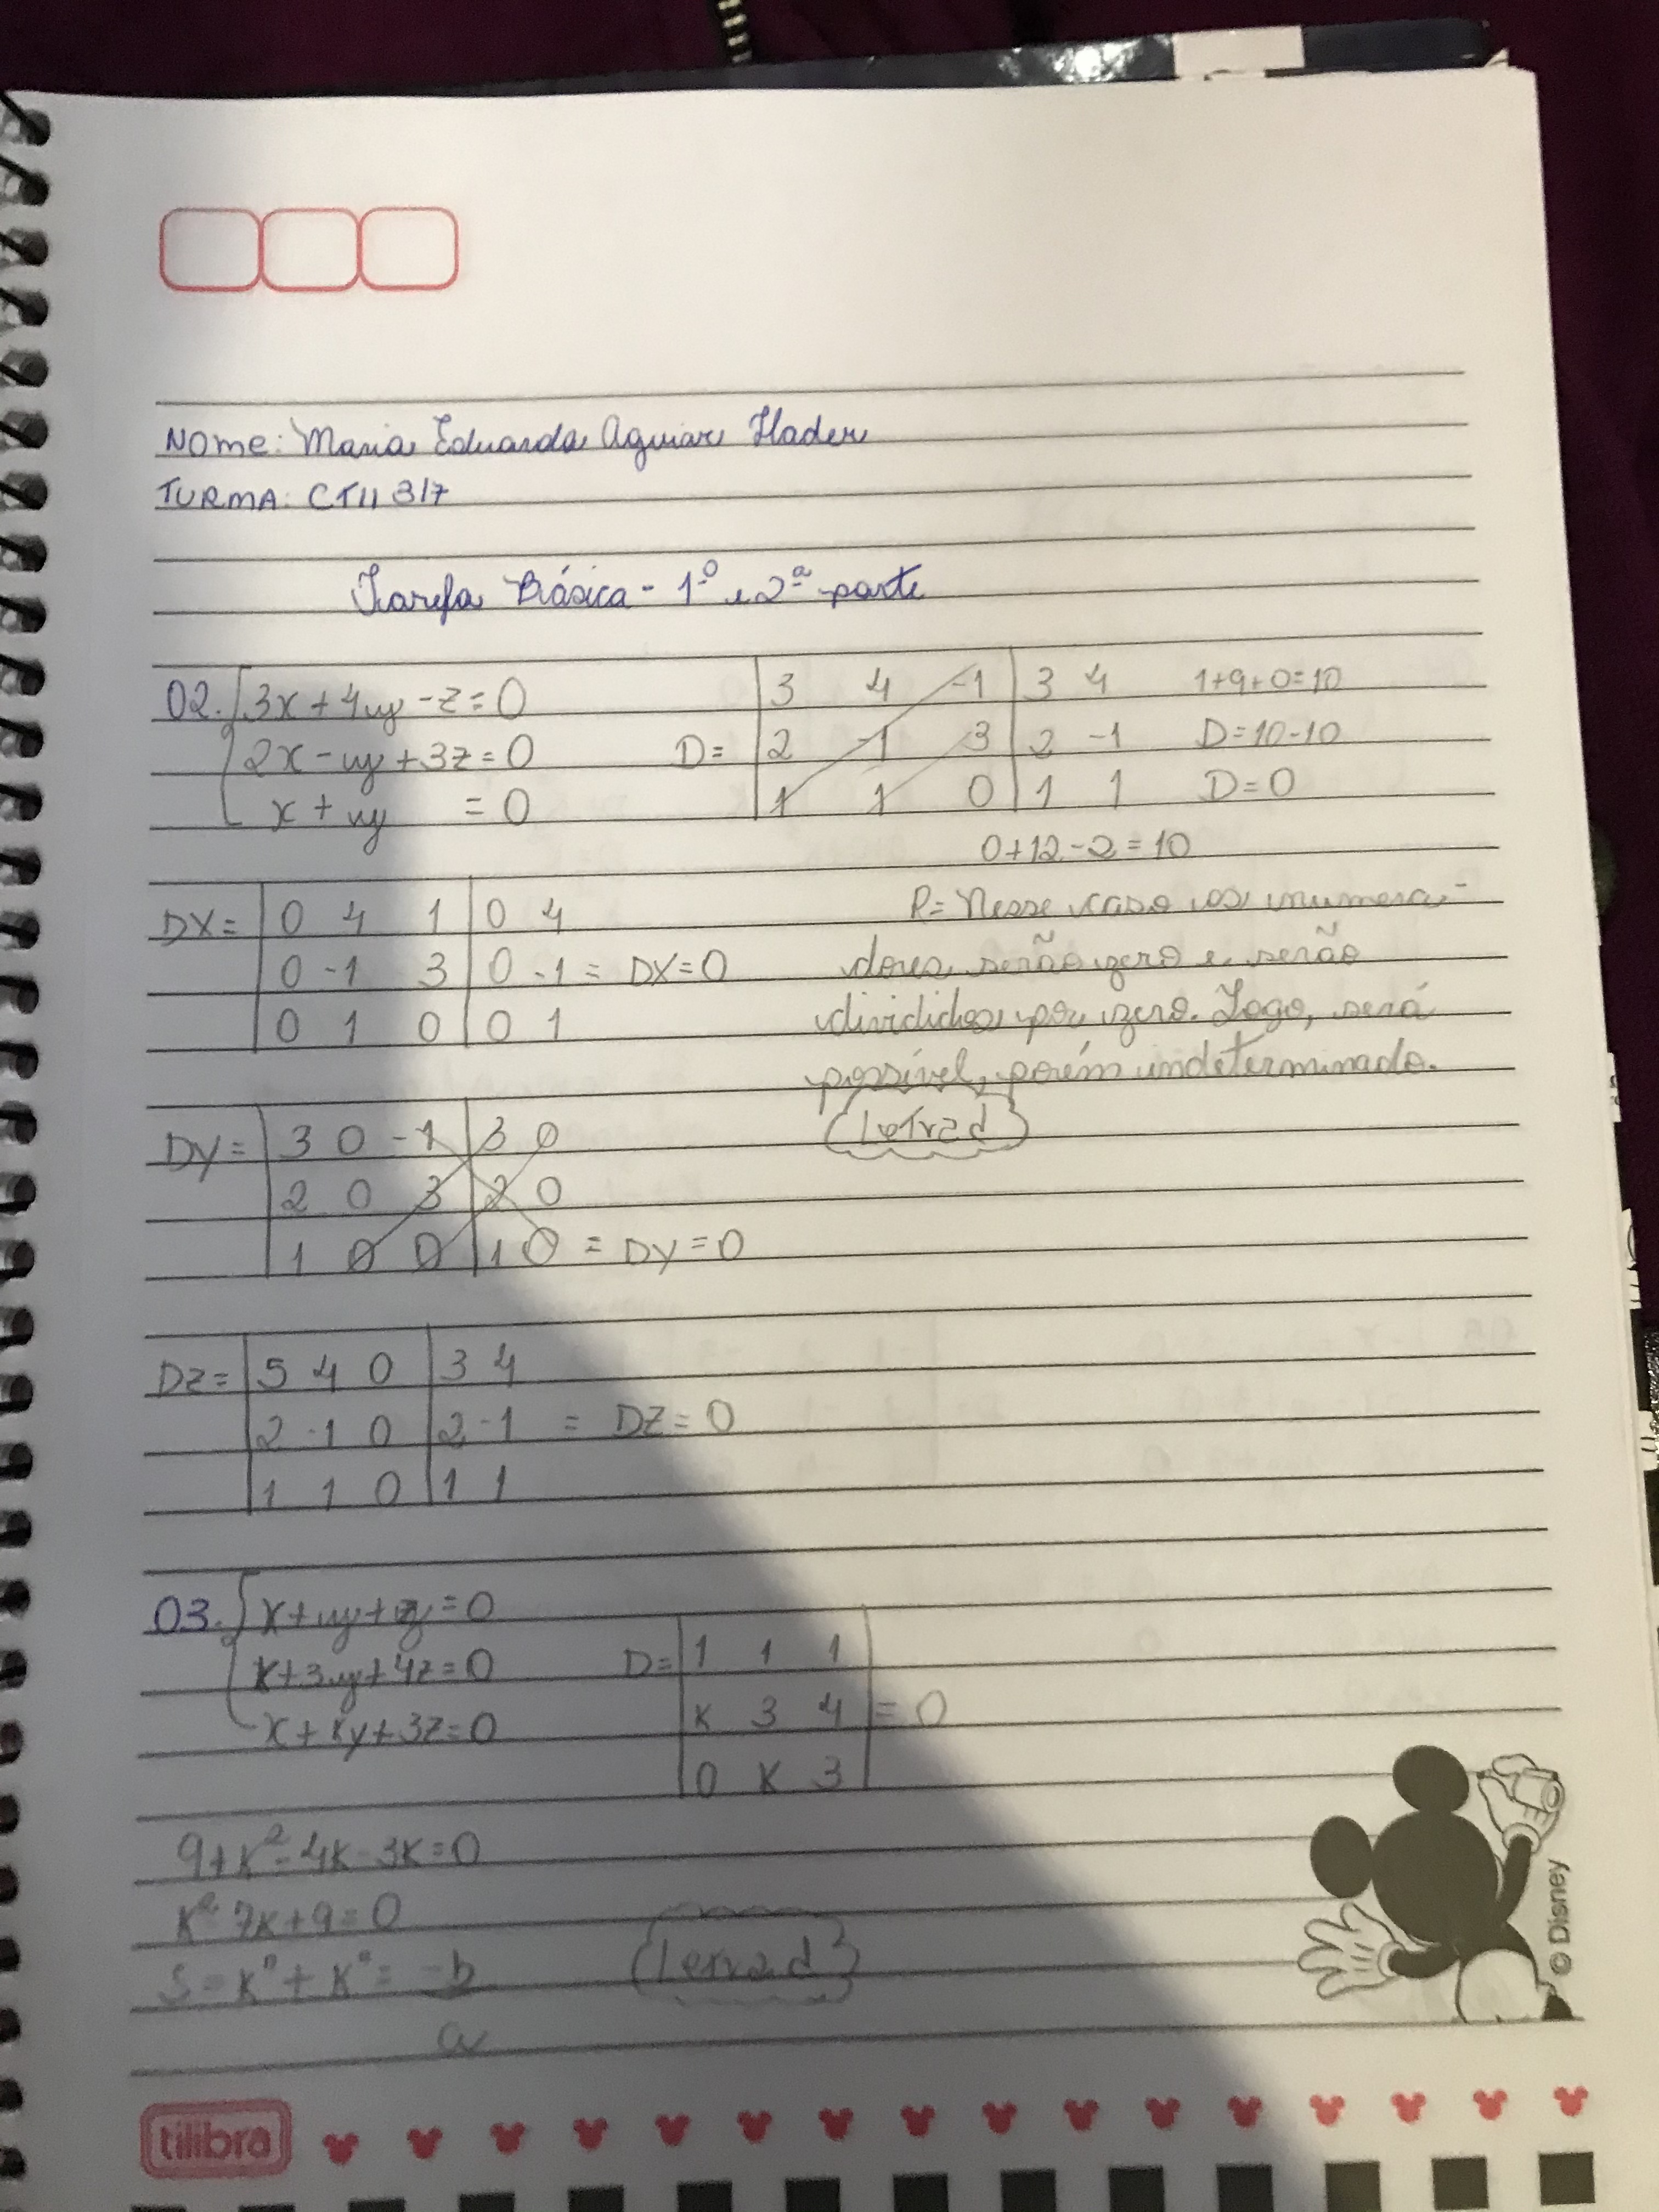 Nome: Maria Eduarda Aguiar Hader
TURMA: CTII 317
Tarefa Básica - 1º e 2ª parte
02. 3x + 4y - z = 0
2x - y + 3z = 0
x + y = 0
D= 3 4 -1 3 4
2 -1 3 2 -1
1 1 0 1 1
1+9+0=10
D=10-10
D=0
0+12-2=10
DX= 0 4 1 0 4
0 -1 3 0 -1 = DX=0
0 1 0 0 1
R= Nesse caso os numera-
dores serão zero e serão
divididos por zero. Logo, será
possível, porém indeterminado.
Letra d
Dy= 3 0 -1 3 0
2 0 3 2 0
1 0 0 1 0 = Dy=0
Dz= 5 4 0 3 4
2 -1 0 2 -1 = DZ=0
1 1 0 1 1
03. x+y+z=0
k+3y+4z=0
x+ky+3z=0
D= 1 1 1
K 3 4 = 0
0 K 3
9+K²-4K-3K=0
K²-7K+9=0
S=K"+K"= -b
a
Letra d
tilibra
© Disney